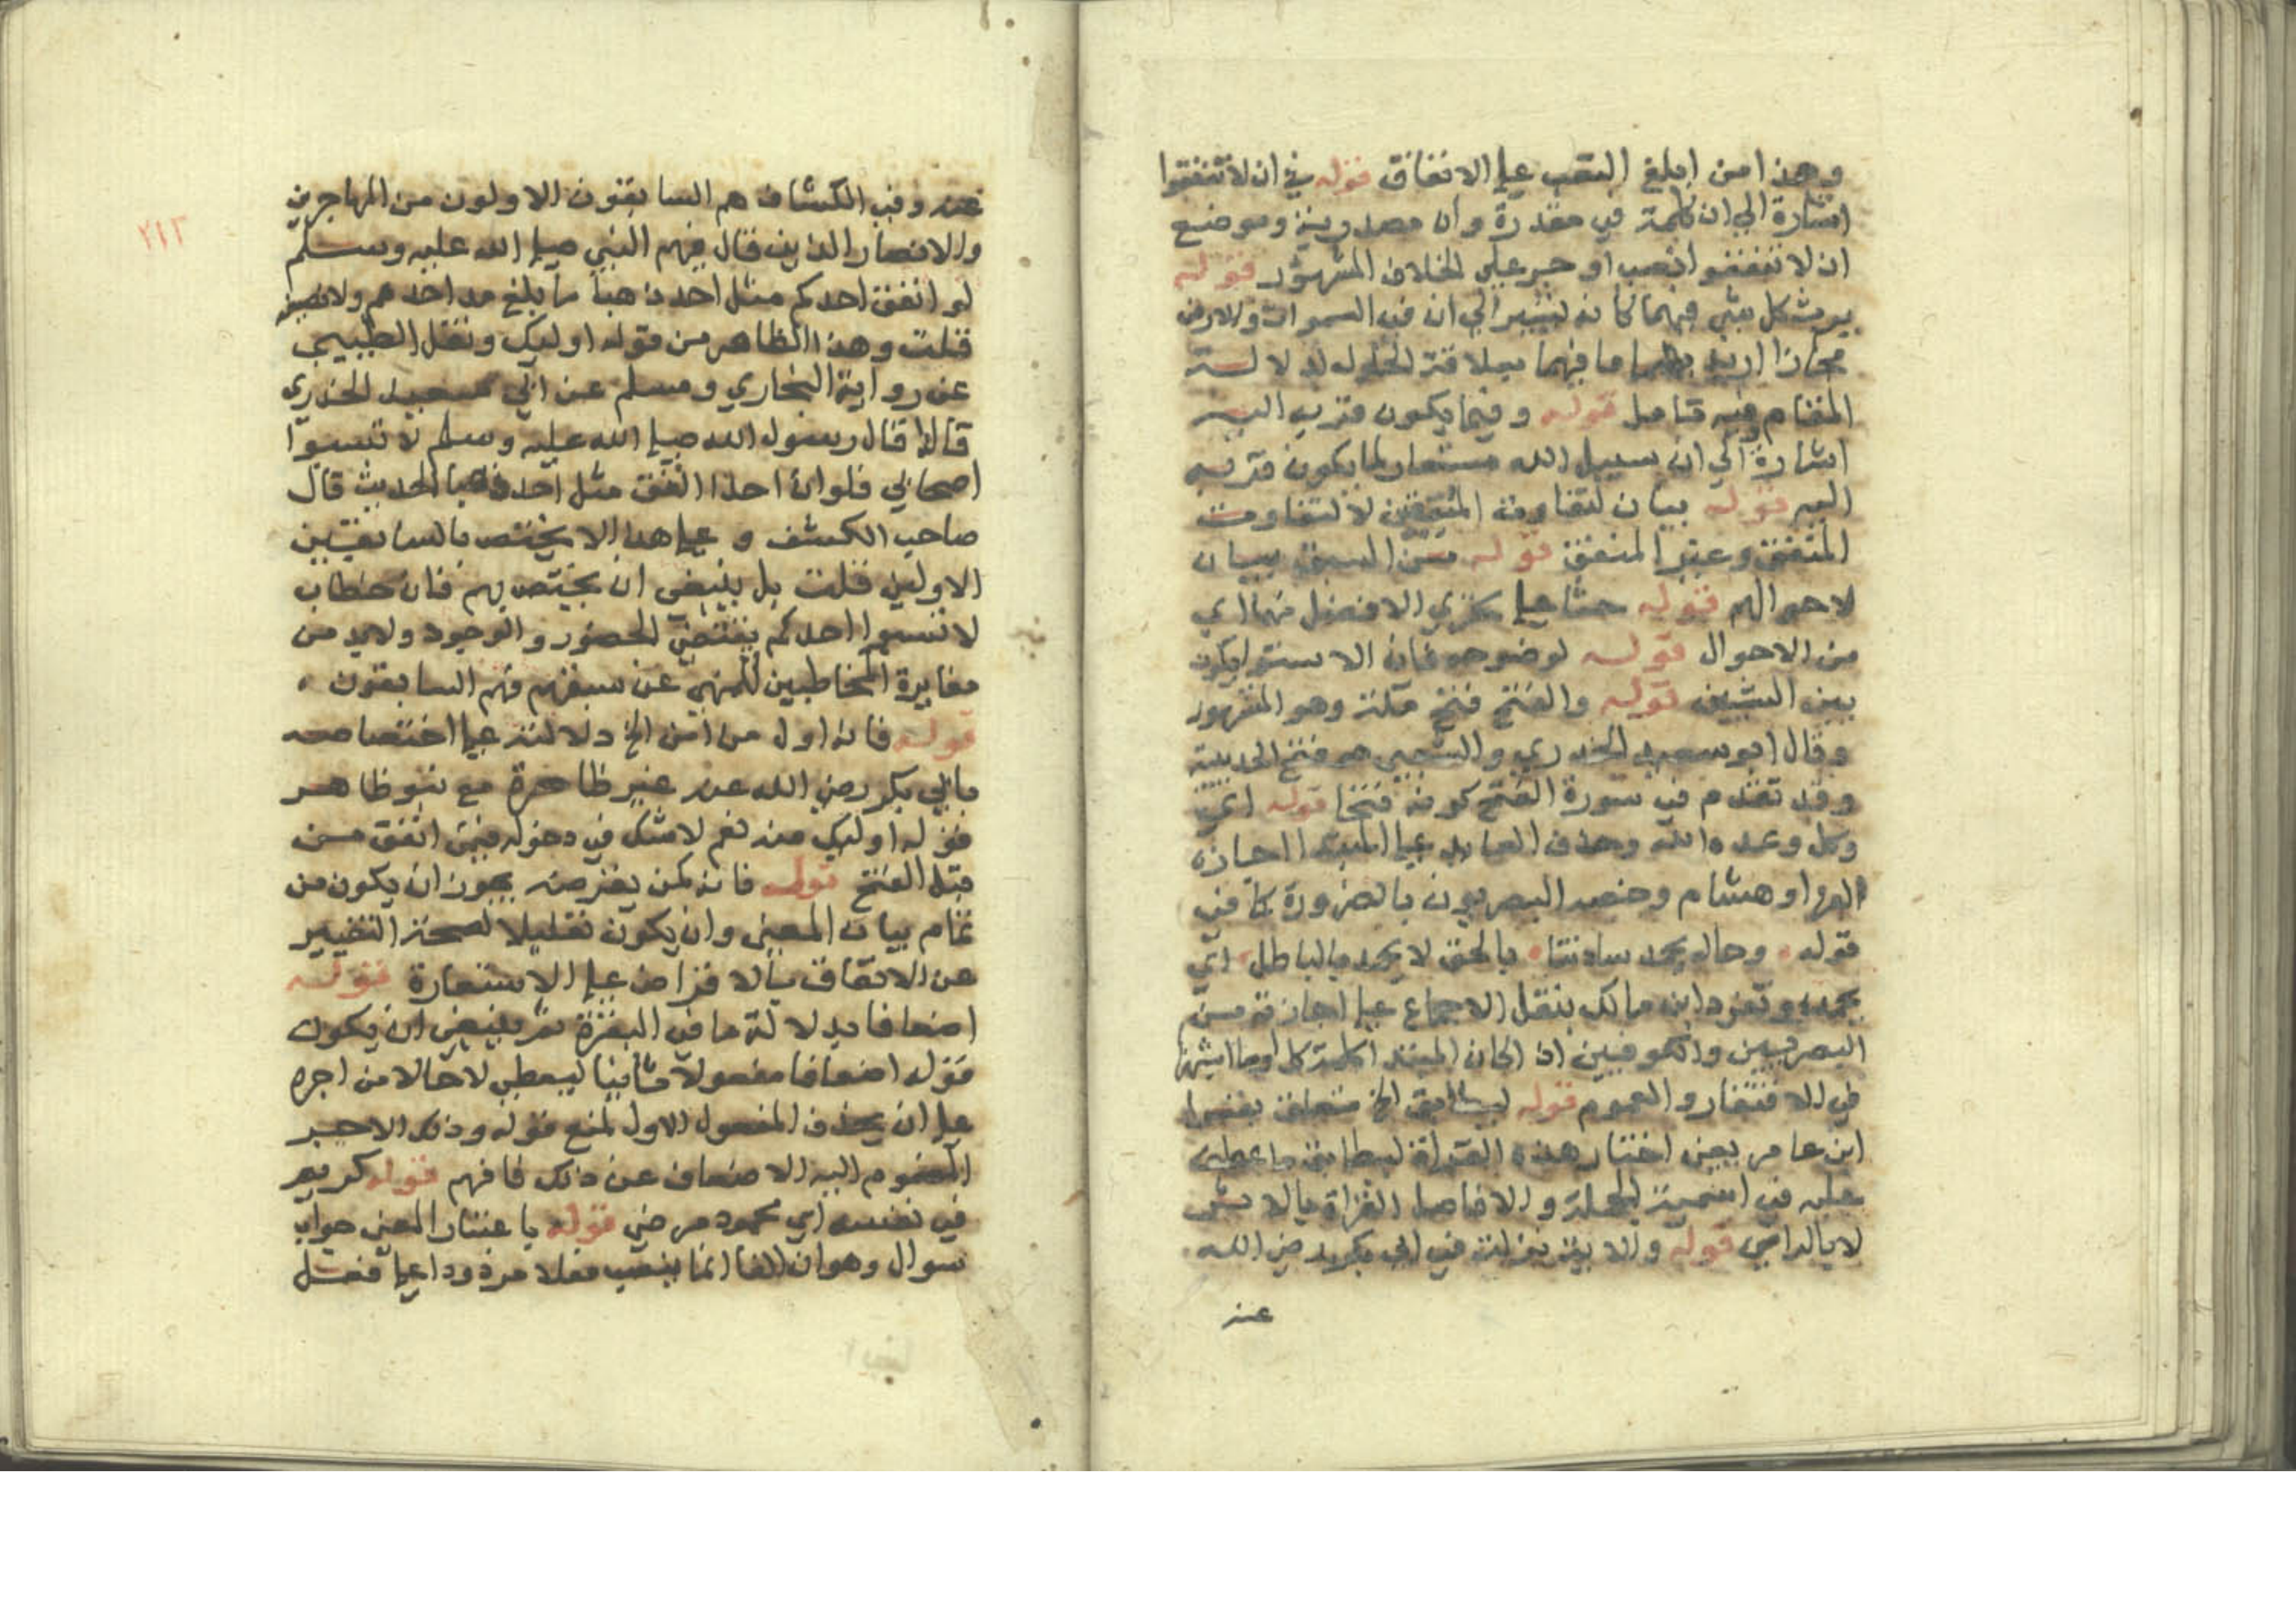 وهذا من ابلغ التعب علي الانفاق قوله في ان لا تنفقوا
اشارة الي ان كلمة في مقدرة وان مصدرية وموضع
ان لا تنفقوا نصب او جر علي الخلاف المشهور قوله
يرث كل شي فيهما كانه يشير الي ان في السموات والارض
مجازا اريد بهما ما فيهما بعلاقة الحلول لدلالة
المقام فيه تامل قوله وفيما يكون قربه اليه
اشارة الي ان سبيل الله مستعار لما يكون قربه
اليه قوله بيان لتفاوت المنفقين لا لتفاوت
المنفق وغير المنفق قوله من السبق بيان
لاحوالهم قوله حثا علي تحري الافضل منها اي
من الاحوال قوله لوضوحه فان الاستوا يكون
بين الشيين قوله والفتح فتح مكة وهو المشهور
وقال ابو سعيد الخدري والشعبي هو فتح الحديبية
وقد تقدم في سورة الفتح كونه فتحا قوله اي
وكل وعده الله وحذف العايد علي المبتدا اجازه
الفرا وهشام وخصه البصريون بالضرورة كما في
قوله وخالد يحمد ساداتنا بالحق لا يحمد بالباطل اي
يحمده وتفرد ابن مالك بنقل الاجماع علي اجازته من
البصريين والكوفيين اذا كان المبتدا كلمة كل او ما اشبهها
في الافتقار والعموم قوله ليطابق الخ متعلق بقرا
ابن عامر يعني اختار هذه القراة ليطابق ما عطف
عليه في اسمية الجملة والافاصل القراة بالاثر
لا بالراي قوله والاية نزلت في ابي بكر رضي الله
عنه
عنه وفي الكشاف هم السابقون الاولون من المهاجرين
والانصار الذين قال فيهم النبي صلي الله عليه وسلم
لو انفق احدكم مثل احد ذهبا ما بلغ مد احدهم ولا نصيفه
قلت وهذا الظاهر من قوله اوليك ونقل الطيبي
عن رواية البخاري ومسلم عن ابي سعيد الخدري
قال قال رسول الله صلي الله عليه وسلم لا تسبوا
اصحابي فلو ان احدا انفق مثل احد ذهبا الحديث قال
صاحب الكشف وعلي هذا لا يختص بالسابقين
الاولين قلت بل ينبغي ان يختص بهم فان خطاب
لا تسبوا احدكم يقتضي الحضور والوجود ولابد من
مغايرة المخاطبين للمنهي عن سبهم فهم السابقون
قوله فانه اول من امن الخ دلالته علي اختصاصه
بابي بكر رضي الله عنه غير ظاهرة مع نبو ظاهر
قوله اوليك عنه نعم لا شك في دخوله فيمن انفق من
قبل الفتح قوله فانه كمن يقرضه يجوز ان يكون من
تمام بيان المعني وان يكون تعليلا لصحة التعبير
عن الانفاق بالاقراض علي الاستعارة قوله
اضعافا بدلالة ما في البقرة ثم ينبغي ان يكون
قوله اضعافا مفعولا ثانيا ليعطي لا حالا من اجره
علي ان يحذف المفعول الاول لمنع قوله وذلك الاجر
المضموم اليه الاضعاف عن ذلك فافهم قوله كريم
في نفسه اي محمود مرضي قوله باعتبار المعني جواب
سوال وهو ان الفا انما ينصب فعلا مردودا علي فعل
٢١٣